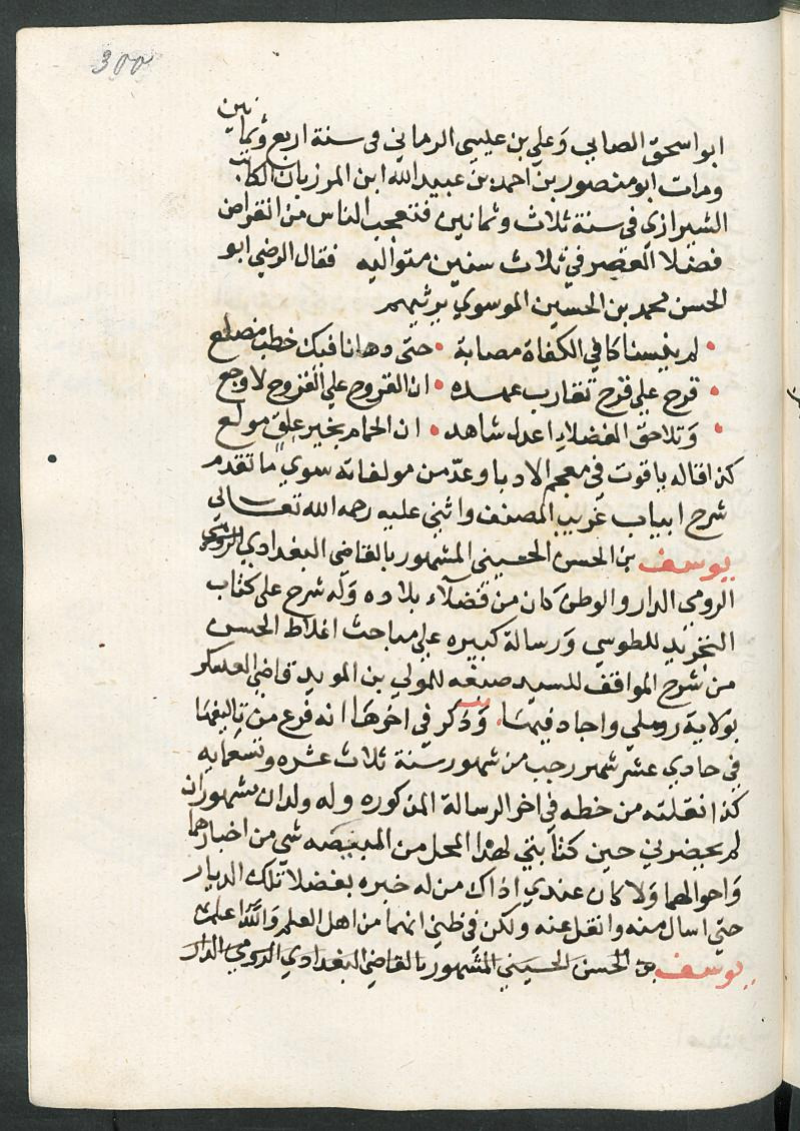 300
ابو اسحق الصابي وعلي بن عليسي الرماني فى سنة اربع وثمانين
ومات ابو منصور بن احمد بن عبيد الله ابن المرزبان الكاتب
الشيرازي في سنة ثلاث وثمانين فتعجب الناس من انقراض
فضلا العصر في ثلاث سنين متواليه فقال الرضي ابو
الحسن محمد بن الحسين الموسوي يرثيهم
• لم ينسنا كافي الكفاة مصابة • حتى دهانا فيك خطب مضلع
• قرح علي قرح تقارب عهده • ان القروح علي القروح لاوجع
• وتلاحق الفضلاء اعدل شاهد • ان الحمام بخير علق مولع
كذا قاله ياقوت في معجم الادبا وعدّ من مولفاته سوي ما تقدم
شرح ابيات غريب المصنف واثني عليه رحمه الله تعالى
يوسف بن الحسن الحسيني المشهور بالقاضي البغدادي الرومي
الرومي الدار والوطن كان من فضلآء بلاده وله شرح علي كتاب
التجريد للطوسي ورسالة كبيره علي مباحث اغلاط الحس
من شرح المواقف للسيد صنفه للمولي بن المويد قاضي العسكر
بولاية روملي واجاد فيها وذكر في اخرها انه فرغ من تاليفها
في حادي عشر شهر رجب من شهور سنة ثلاث عشره وتسعمايه
كذا نقلته من خطه في اخر الرسالة المذكوره وله ولدان مشهوران
لم يحضرني حين كتابتي لهذا المحل من المبيضه شي من اخبارهما
واحوالهما ولا كان عندي اذاك من له خبره بفضلا تلك الديار
حتي اسال منه وانقل عنه ولكن في ظني انهما من اهل العلم والله اعلم
يوسف بن الحسن الحسيني المشهور بالقاضي البغدادي الرومي الدار